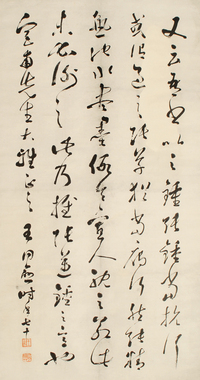 又云吾書比之鍾張鍾當抗行
或謂過之張草猶當雁行然張精
熟池水盡墨假令寡人耽之若此
未必謝之此乃推張邁鍾之意也
甫先生大雅正之 王同愈時年七十